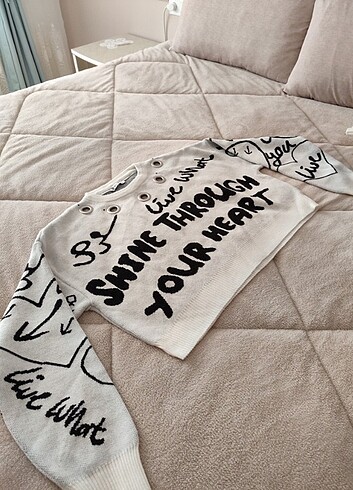 Live What
SHINE THROUGH
YOUR HEART
you
Live
Live What